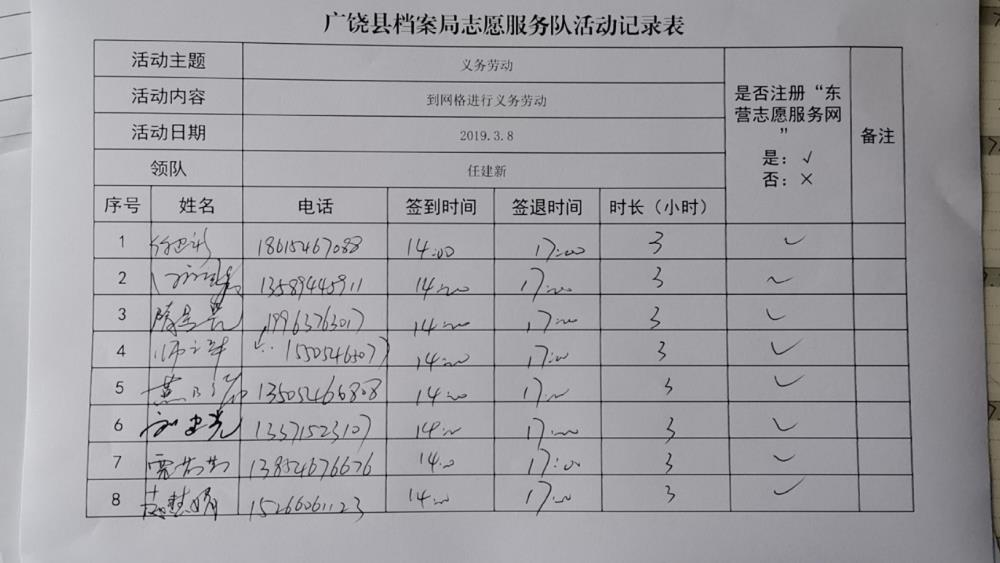 广饶县档案局志愿服务队活动记录表
活动主题 义务劳动 是否注册“东营志愿服务网” 是：√ 否：× 备注
活动内容 到网格进行义务劳动
活动日期 2019.3.8
领队 任建新
序号 姓名 电话 签到时间 签退时间 时长（小时）
1 18615467088 14:00 17:00 3 ✓
2 13589445911 14:00 17:00 3 ~
3 19963763017 14:00 17:00 3 ✓
4 14:00 17:00 3 ✓
5 13505466808 14:00 17:00 3 ✓
6 13371523107 14:00 17:00 3 ✓
7 13854676676 14:0 17:00 3 ✓
8 15266061123 14:00 17:00 3 ✓